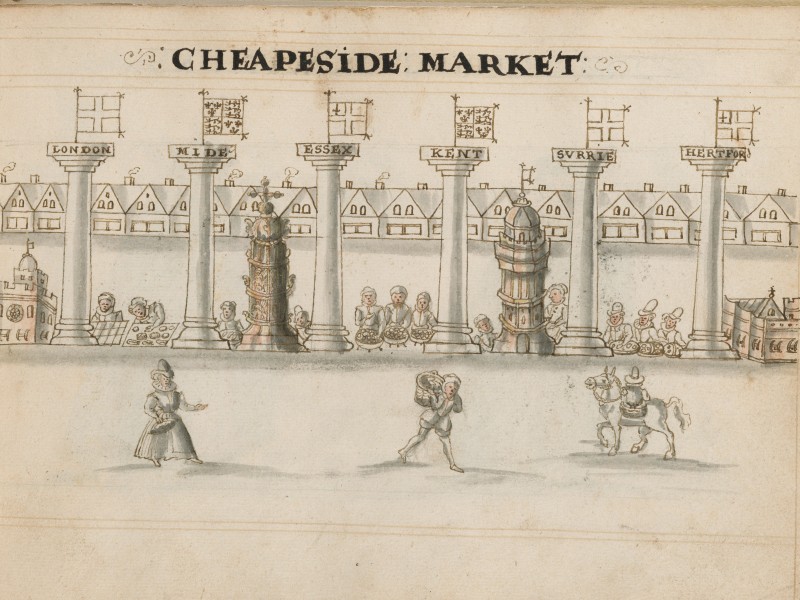 CHEAPESIDE: MARKET:
LONDON
MIDE
ESSEX
KENT
SVRRIE
HERTFOR